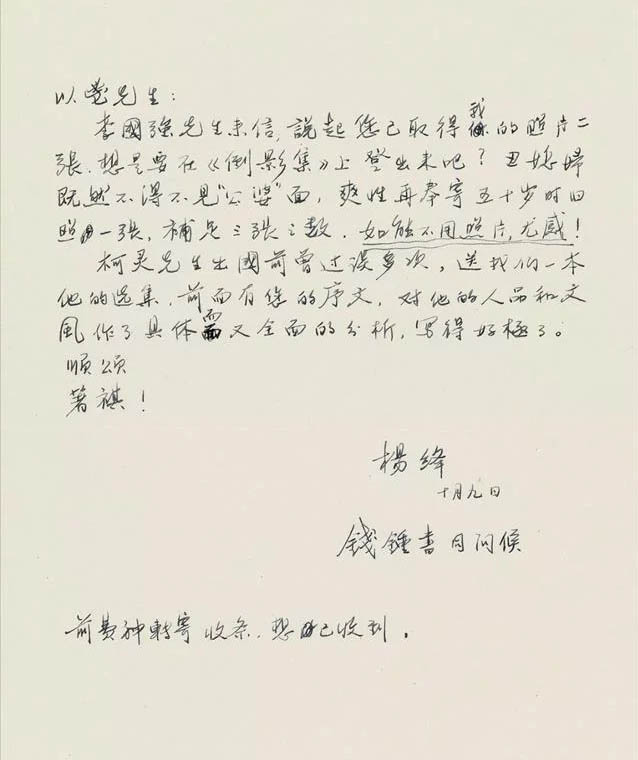 以鬯先生：
李國強先生来信，說起您已取得我的照片二
張，想是要在《倒影集》上登出来吧？丑媳婦
既然不得不見"公婆"面，爽性再奉寄五十岁时旧
照一張，補足三張之数．如能不用照片，尤感！
柯灵先生出國前曾过談多次，送我们一本
他的选集，前面有您的序文，对他的人品和文
風作了具体而又全面的分析，写得好極了。
順頌
著祺！
楊絳
十月九日
錢鍾書同问候
前費神轉寄收条．想已收到．